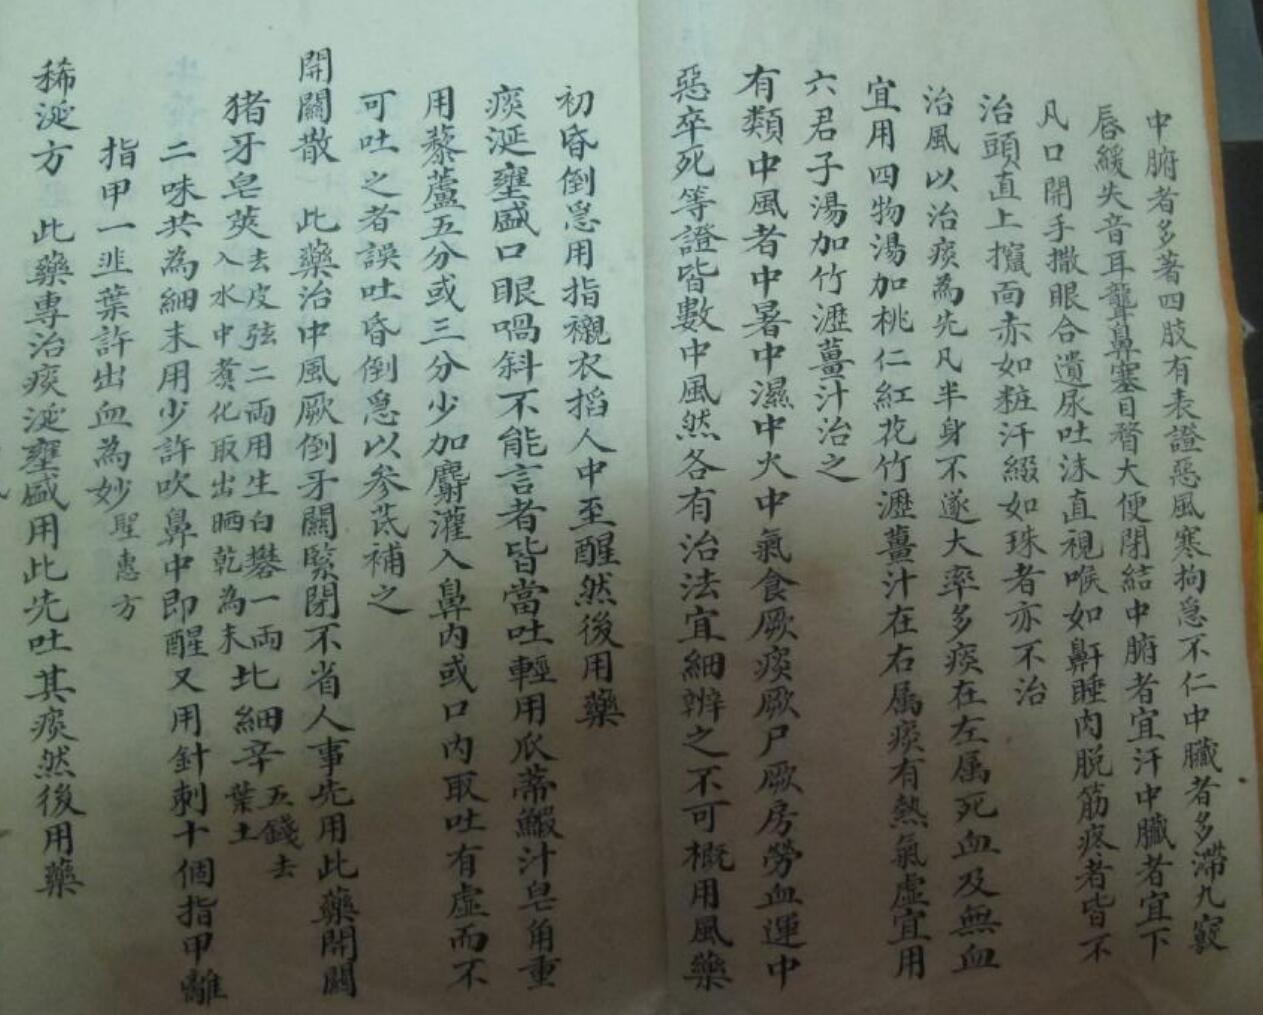 中腑者多著四肢有表證惡風寒拘急不仁中臟者多滯九竅
唇緩失音耳聾鼻塞目瞀大便閉結中腑者宜汗中臟者宜下
凡口開手撒眼合遺尿吐沫直視喉如鼾睡肉脱筋疼者皆不
治頭直上攛面赤如粧汗綴如珠者亦不治
治風以治痰為先凡半身不遂大率多痰在左属死血及無血
宜用四物湯加桃仁紅花竹瀝薑汁在右属痰有熱氣虛宜用
六君子湯加竹瀝薑汁治之
有類中風者中暑中濕中火中氣食厥痰厥尸厥房勞血運中
惡卒死等證皆數中風然各有治法宜細辨之不可概用風藥
初昏倒急用指襯衣掐人中至醒然後用藥
痰涎壅盛口眼喎斜不能言者皆當吐輕用瓜蒂鰕汁皂角重
用藜蘆五分或三分少加麝灌入鼻内或口内取吐有虛而不
可吐之者誤吐昏倒急以參芪補之
開關散 此藥治中風厥倒牙關緊閉不省人事先用此藥開關
猪牙皂莢去皮弦二両用生白礬一両入水中煑化取出晒乾為末北細辛五錢去葉土
二味共為細末用少許吹鼻中即醒又用針刺十個指甲離
指甲一韭葉許出血為妙聖惠方
稀涎方 此藥專治痰涎壅盛用此先吐其痰然後用藥